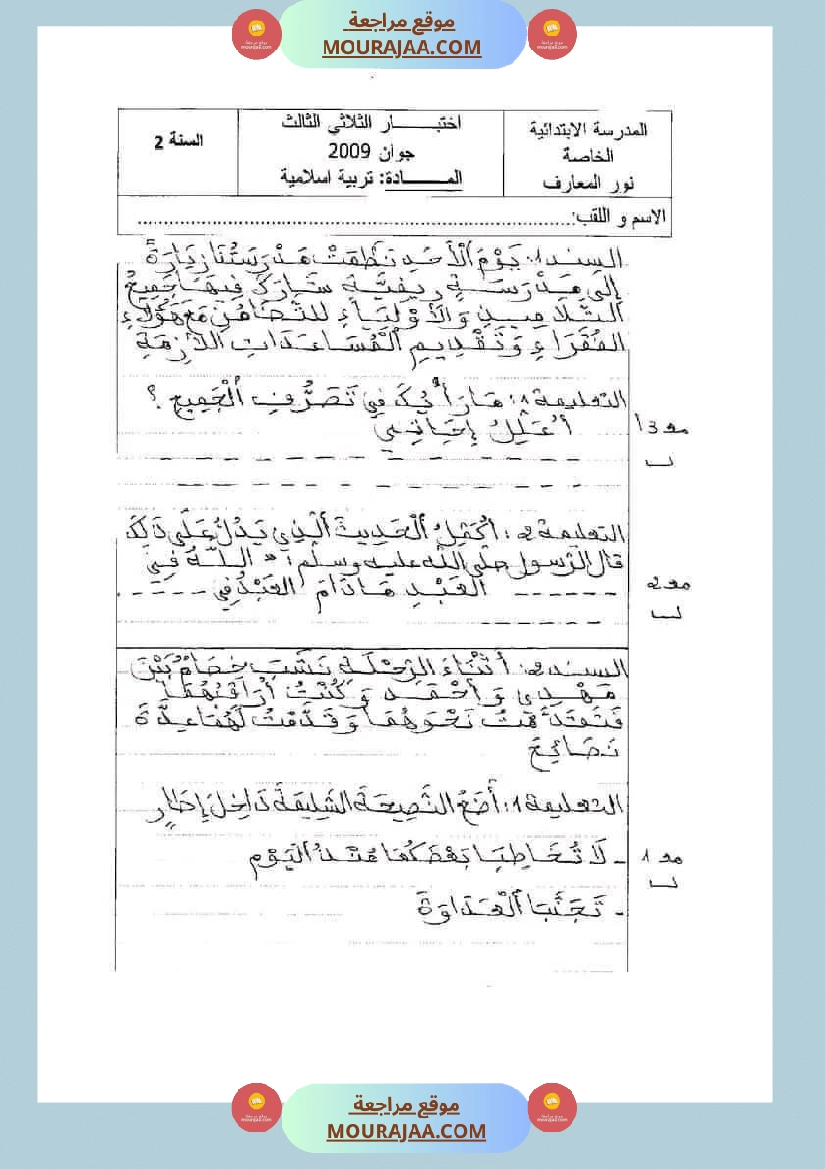 موقع مراجعة
MOURAJAA.COM
المدرسة الابتدائية
الخاصة
نور المعارف
اختبـــــــار الثلاثي الثالث
جوان 2009
المـــــــادة: تربية اسلامية
السنة 2
الاسم و اللقب:
السند 1: يَوْمَ الْأَحَدِ نَظَّمَتْ مَدْرَسَتُنَا زِيَارَةً
إِلَى مَدْرَسَةٍ رِيفِيَّةٍ شَارَكَ فِيهَا جَمِيعُ
التَّلَامِيذِ وَالْأَوْلِيَاءِ للتَّضَامُنِ مَعَ هَؤُلَاءِ
الفُقَرَاءِ وَتَقْدِيمِ الْمُسَاعَدَاتِ اللَّازِمَةِ
التعليمة 1: مَا رَأْيُكَ فِي تَصَرُّفِ الْجَمِيعِ ؟
أُعَلِّلُ إِجَابَتِي
مع 3 أ
التعليمة 2: أُكْمِلُ الْحَدِيثَ الَّذِي يَدُلُّ عَلَى ذَلِكَ
قال الرّسول صلّى اللّه عليه وسلّم: " اللَّهُ فِي
العَبْدِ مَا دَامَ العَبْدُ فِي
مع 2
السند 2: أَثْنَاءَ الرِّحْلَةِ نَشَبَ خِصَامٌ بَيْنَ
مَهْدِي وَأَحْمَد وَكُنْتُ أُرَاقِبُهُمَا
قُمْتُ نَحْوَهُمَا وَقَدَّمْتُ لَهُمَا عِدَّةَ
نَصَائِحَ
التعليمة 1: أَضَعُ النَّصِيحَةَ السَّلِيمَةَ دَاخِلَ إِطَارٍ
- لَا تُخَاطِبَا بَعْضَكُمَا مُنْذُ الْيَوْمِ
مع 1
- تَجَنَّبَا الْعَدَاوَةَ
موقع مراجعة
MOURAJAA.COM